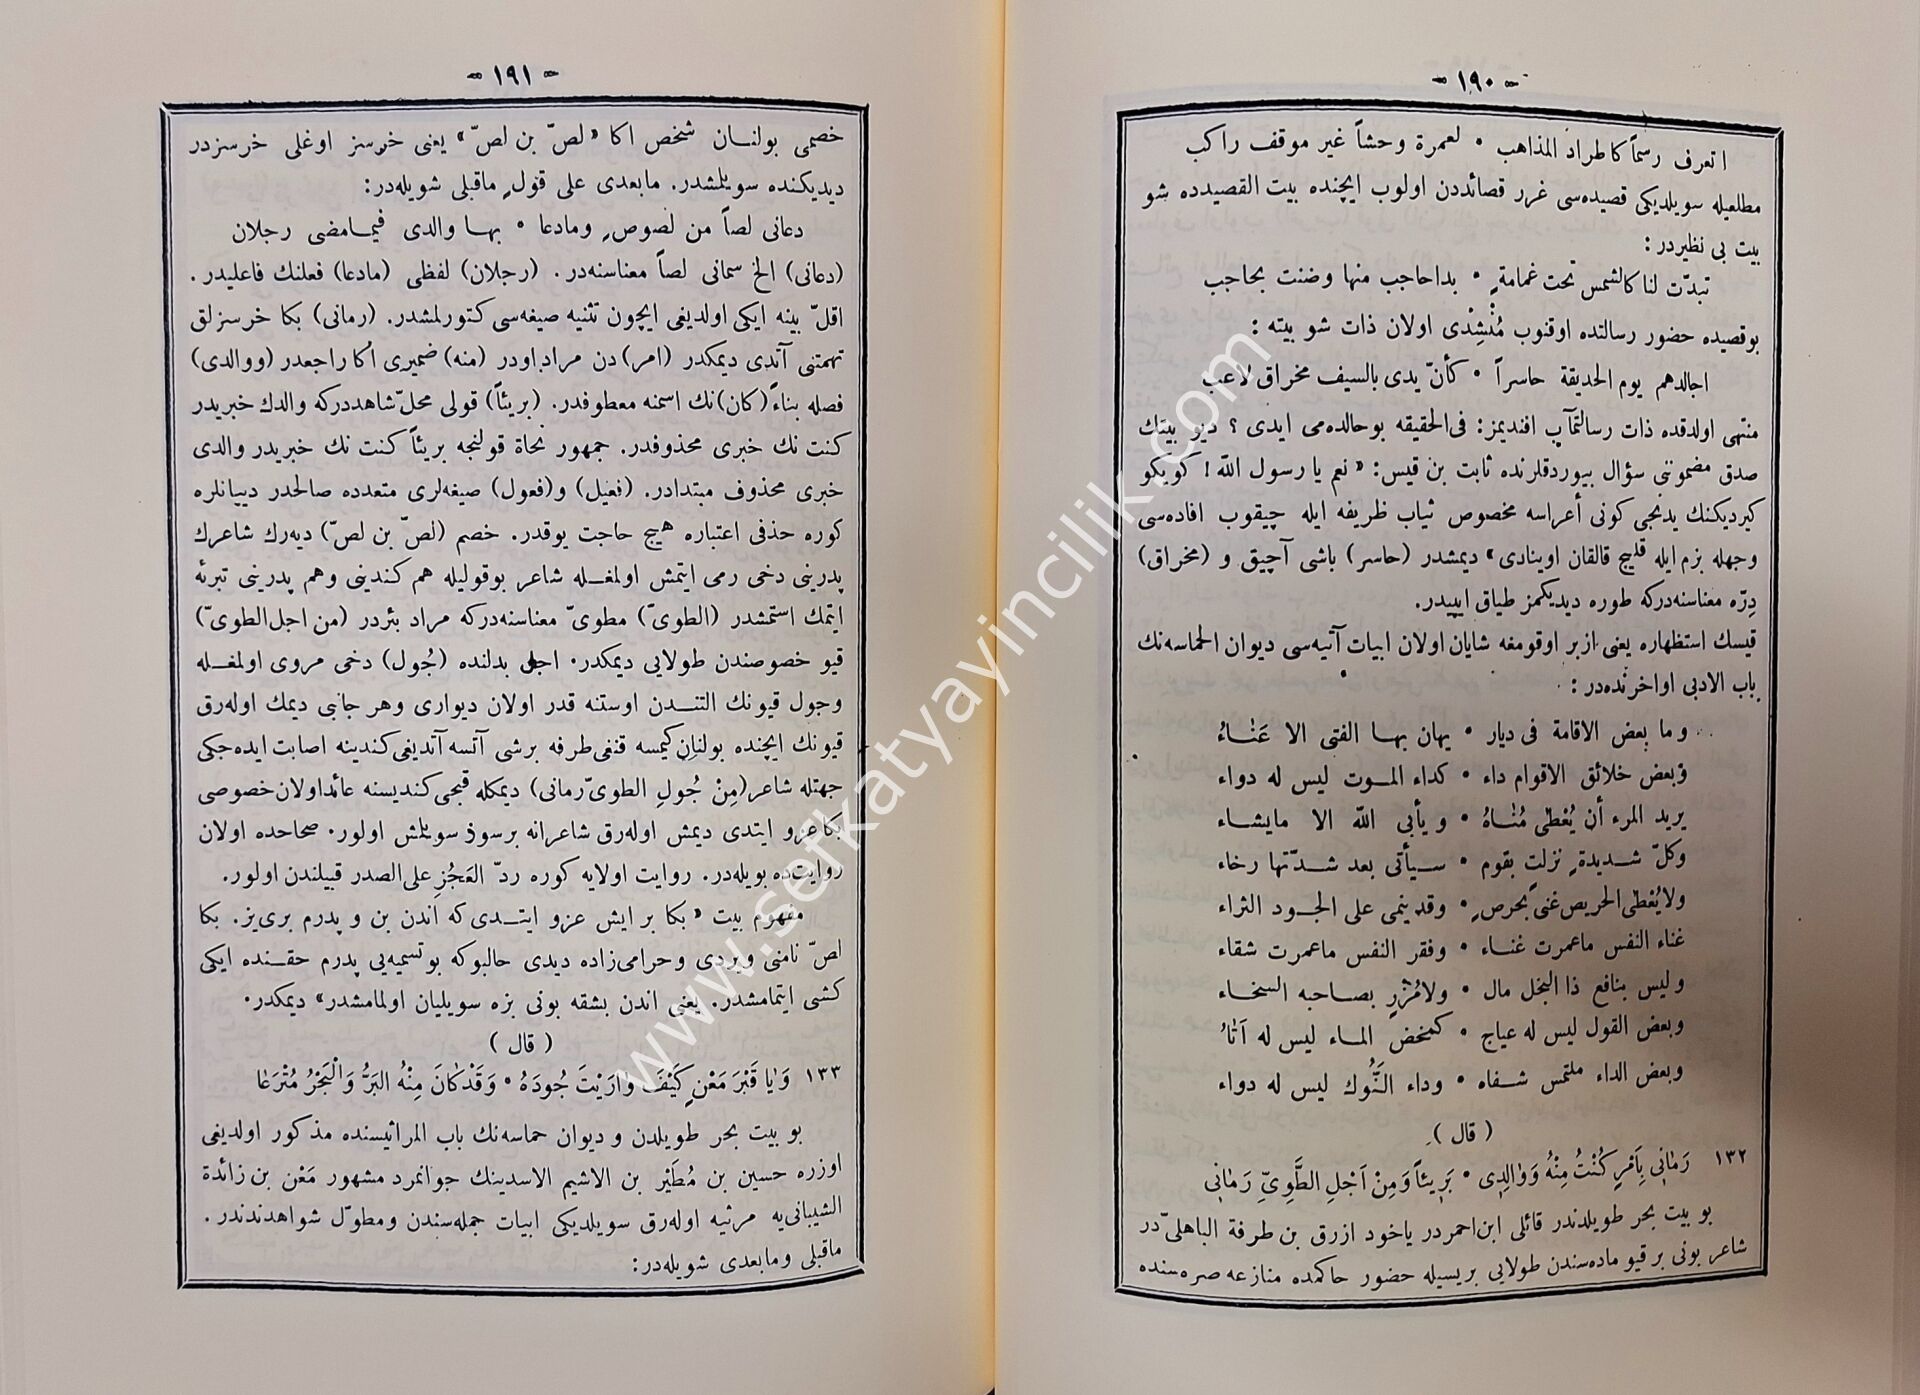 - ١٩٠ -
اتعرف رسماً كاطراد المذاهب • لعمرة وحشاً غير موقف راكب
مطلعيله سويلديكى قصيده‌سى غرر قصائددن اولوب ايچنده بيت القصيدده شو
بيت بى نظيردر :
تبدّت لنا كالشمس تحت غمامةٍ • بدا حاجب منها وضنت بحاجب
بوقصيده حضور رسالتده اوقنوب مُنْشِدى اولان ذات شو بيته :
اجالدهم يوم الحديقة حاسراً • كأنّ يدى بالسيف مخراق لاعب
منتهى اولدقده ذات رسالتمآب افنديمز: فى الحقيقه بوحالده‌مى ايدى ؟ ديو بيتك
صدق مضمونى سؤال بيوردقلرنده ثابت بن قيس: « نعم يا رسول اللّه ! كويكو
كيرديكنك يدنجى كونى أعراسه مخصوص ثياب ظريفه ايله چيقوب افاده‌سى
وجهله بزم ايله قليج قالقان اوينادى » ديمشدر (حاسر) باشى آچيق و (مخراق)
دِرّه معناسنه‌دركه طوره ديديكمز طياق ايپيدر.
قيسك استظهاره يعنى ازبر اوقومغه شايان اولان ابيات آتيه‌سى ديوان الحماسه‌نك
باب الادبى اواخرنده‌در :
وما بعض الاقامة فى ديار • يهان بها الفتى الا عَنَاءُ
وبعض خلائق الاقوام داء • كداء الموت ليس له دواء
يريد المرء أن يُعْطٰى مُنَاهُ • ويأبى اللّه الا مايشاء
وكلّ شديدةٍ نزلت بقوم • سيأتى بعد شدّتها رخاء
ولا يُعْطٰى الحريص غنى بحرصٍ • وقد ينمى على الجود الثراء
غناء النفس ماعمرت غناء • وفقر النفس ماعمرت شقاء
وليس بنافع ذا البخل مال • ولا مُزْرٍ بصاحبه السخاء
وبعض القول ليس له عياج • كمخض الماء ليس له اَتَاءُ
وبعض الداء ملتمس شفاه • وداء النُّوك ليس له دواء
( قال )
١٣٢ رَمَانِى بِاَمْرٍ كُنْتُ مِنْهُ وَوَالِدِى • بَرِيئاً وَمِنْ اَجْلِ الطَّوِىِّ رَمَانِى
بو بيت بحر طويلدندر قائلى ابن احمردر ياخود ازرق بن طرفة الباهلىّ در
شاعر بونى بر قيو ماده‌سندن طولايى بريسيله حضور حاكمده منازعه صره‌سنده
- ١٩١ -
خصمى بولنان شخص اكا « لصّ بن لصّ » يعنى خرسز اوغلى خرسزدر
ديديكنده سويلمشدر. مابعدى على قولٍ ماقبلى شويله‌در:
دعانى لصاً من لصوصٍ ومادعا • بها والدى فيمامضى رجلان
(دعانى) الخ سمانى لصاً معناسنه‌در. (رجلان) لفظى (مادعا) فعلنك فاعليدر.
اقلّ بينه ايكى اولديغى ايچون تثنيه صيغه‌سى كتورلمشدر. (رمانى) بكا خرسزلق
تهمتنى آتدى ديمكدر (امر) دن مراد اودر (منه) ضميرى اكا راجعدر (ووالدى)
فصله بناءً (كان)نك اسمنه معطوفدر. (بريئاً) قولى محلّ شاهددركه والدك خبريدر
كنت نك خبرى محذوفدر. جمهور نحاة قولنجه بريئاً كنت نك خبريدر والدى
خبرى محذوف مبتدادر. (فعيل) و(فعول) صيغه‌لرى متعدده صالحدر ديپانلره
كوره حذفى اعتباره هيچ حاجت يوقدر. خصم (لصّ بن لصّ) ديه‌رك شاعرك
پدرينى دخى رمى ايتمش اولمغله شاعر بوقوليله هم كندينى وهم پدرينى تبرئه
ايتمك استمشدر (الطوىّ) مطوىّ معناسنه‌دركه مراد بئردر (من اجل الطوىّ)
قيو خصوصندن طولايى ديمكدر. اجل بدلنده (جُول) دخى مروى اولمغله
وجول قيونك التندن اوستنه قدر اولان ديوارى وهر جانبى ديمك اوله‌رق
قيونك ايچنده بولنان كيمسه قنغى طرفه برشى آتسه آتديغى كندينه اصابت ايده‌جكى
جهتله شاعر (مِنْ جُولِ الطوىّ رمانى) ديمكله قبجى كنديسنه عائد اولان خصوصى
بكا عزو ايتدى ديمش اوله‌رق شاعرانه برسوز سويلمش اولور. صحاحده اولان
روايت‌ده بويله‌در. روايت اولايه كوره ردّ العَجُزِ على الصدر قبيلندن اولور.
مفهوم بيت « بكا بر ايش عزو ايتدى كه اندن بن و پدرم برى‌يز. بكا
لصّ نامنى ويردى وحرامى‌زاده ديدى حالبوكه بو تسميه‌يى پدرم حقنده ايكى
كشى ايتمامشدر. يعنى اندن بشقه بونى بزه سويليان اولمامشدر» ديمكدر.
( قال )
١٣٣ وَيَا قَبْرَ مَعْنٍ كَيْفَ وَارَيْتَ جُودَهُ • وَقَدْ كَانَ مِنْهُ البَرُّ وَالْبَحْرُ مُتْرَعَا
بو بيت بحر طويلدن و ديوان حماسه‌نك باب المراثيسنده مذكور اولديغى
اوزره حسين بن مُطَيْر بن الاشيم الاسدينك جوانمرد مشهور مَعْن بن زائدة
الشيبانى‌يه مرثيه اوله‌رق سويلديكى ابيات جمله‌سندن ومطوّل شواهدندندر.
ماقبلى ومابعدى شويله‌در:
www.sefkatyayincilik.com